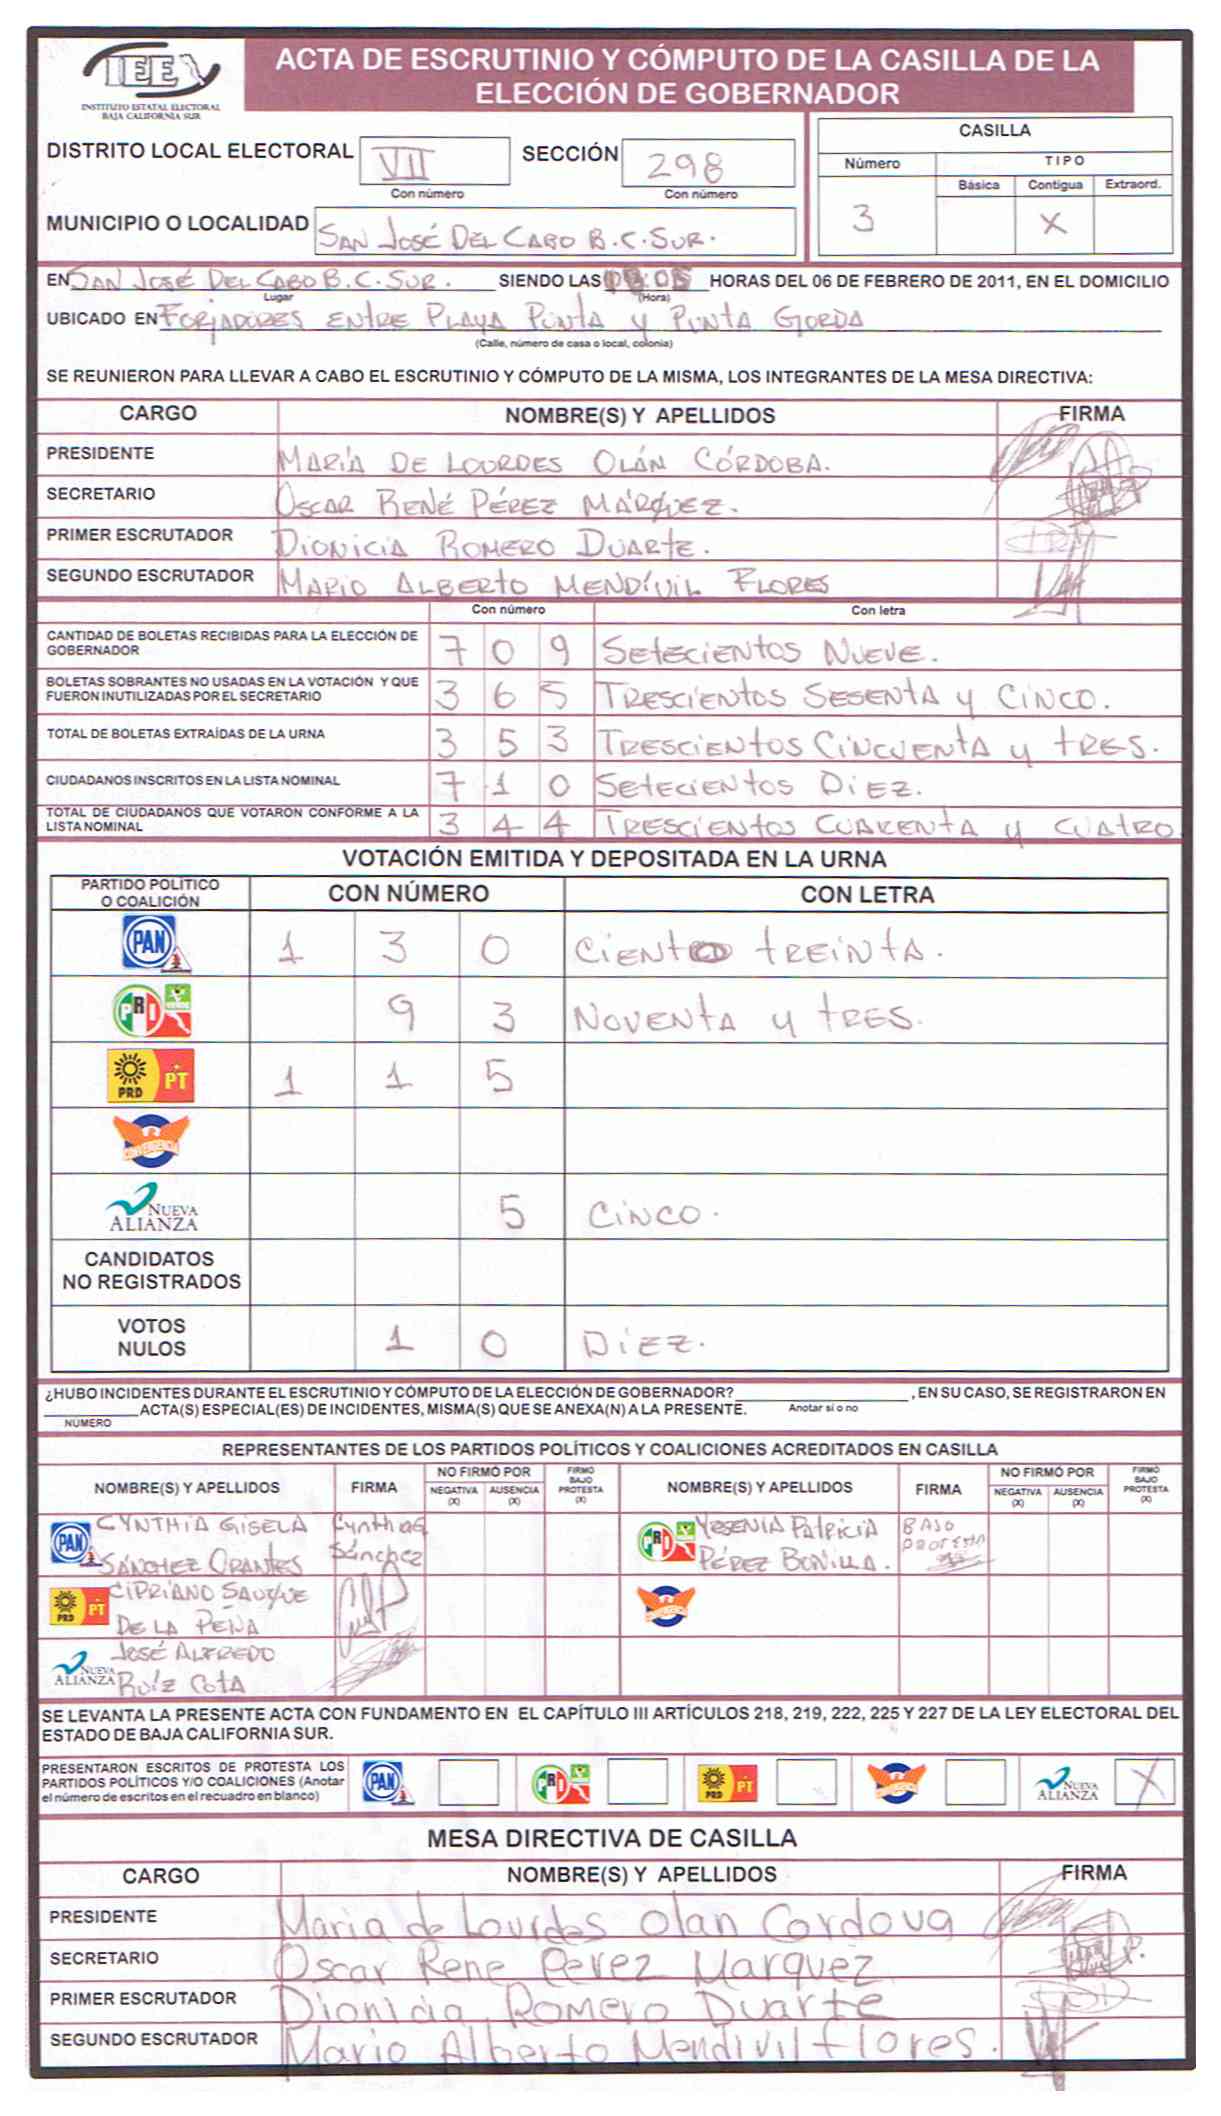 IEE
INSTITUTO ESTATAL ELECTORAL
BAJA CALIFORNIA SUR
ACTA DE ESCRUTINIO Y CÓMPUTO DE LA CASILLA DE LA
ELECCIÓN DE GOBERNADOR
DISTRITO LOCAL ELECTORAL VII SECCIÓN 298
Con número Con número
MUNICIPIO O LOCALIDAD SAN JOSÉ DEL CABO B.C.SUR.
CASILLA
Número TIPO
Básica Contigua Extraord.
3 X
EN SAN JOSÉ DEL CABO B.C.SUR. SIENDO LAS HORAS DEL 06 DE FEBRERO DE 2011, EN EL DOMICILIO
Lugar (Hora)
UBICADO EN FORJADORES ENTRE PLAYA PUNTA y PUNTA GORDA
(Calle, número de casa o local, colonia)
SE REUNIERON PARA LLEVAR A CABO EL ESCRUTINIO Y CÓMPUTO DE LA MISMA, LOS INTEGRANTES DE LA MESA DIRECTIVA:
CARGO NOMBRE(S) Y APELLIDOS FIRMA
PRESIDENTE MARÍA DE LOURDES OLÁN CÓRDOBA.
SECRETARIO OSCAR RENÉ PÉREZ MÁRQUEZ.
PRIMER ESCRUTADOR DIONICIA ROMERO DUARTE.
SEGUNDO ESCRUTADOR MARIO ALBERTO MENDÍVIL FLORES
Con número Con letra
CANTIDAD DE BOLETAS RECIBIDAS PARA LA ELECCIÓN DE
GOBERNADOR 7 0 9 SETECIENTOS NUEVE.
BOLETAS SOBRANTES NO USADAS EN LA VOTACIÓN Y QUE
FUERON INUTILIZADAS POR EL SECRETARIO 3 6 5 TRESCIENTOS SESENTA y CINCO.
TOTAL DE BOLETAS EXTRAÍDAS DE LA URNA 3 5 3 TRESCIENTOS CINCUENTA y TRES.
CIUDADANOS INSCRITOS EN LA LISTA NOMINAL 7 1 0 SETECIENTOS DIEZ.
TOTAL DE CIUDADANOS QUE VOTARON CONFORME A LA
LISTA NOMINAL 3 4 4 TRESCIENTOS CUARENTA y CUATRO
VOTACIÓN EMITIDA Y DEPOSITADA EN LA URNA
PARTIDO POLÍTICO
O COALICIÓN CON NÚMERO CON LETRA
PAN 1 3 0 CIENTO TREINTA.
PRI VERDE 9 3 NOVENTA y TRES.
PRD PT 1 1 5
CONVERGENCIA
NUEVA ALIANZA 5 CINCO.
CANDIDATOS
NO REGISTRADOS
VOTOS
NULOS 1 0 DIEZ.
¿HUBO INCIDENTES DURANTE EL ESCRUTINIO Y CÓMPUTO DE LA ELECCIÓN DE GOBERNADOR? , EN SU CASO, SE REGISTRARON EN
ACTA(S) ESPECIAL(ES) DE INCIDENTES, MISMA(S) QUE SE ANEXA(N) A LA PRESENTE. Anotar si o no
NÚMERO
REPRESENTANTES DE LOS PARTIDOS POLÍTICOS Y COALICIONES ACREDITADOS EN CASILLA
NOMBRE(S) Y APELLIDOS FIRMA NO FIRMÓ POR NEGATIVA (X) AUSENCIA (X) FIRMÓ BAJO PROTESTA (X) NOMBRE(S) Y APELLIDOS FIRMA NO FIRMÓ POR NEGATIVA (X) AUSENCIA (X) FIRMÓ BAJO PROTESTA (X)
PAN CYNTHIA GISELA Cynthia G PRI YESENIA PATRICIA BAJO
SÁNCHEZ ORANTES Sánchez PÉREZ BONILLA. PROTESTA
PRD PT CIPRIANO SAUQUE CONVERGENCIA
DE LA PEÑA
NUEVA ALIANZA JOSÉ ALFREDO
RUÍZ COTA
SE LEVANTA LA PRESENTE ACTA CON FUNDAMENTO EN EL CAPÍTULO III ARTÍCULOS 218, 219, 222, 225 Y 227 DE LA LEY ELECTORAL DEL
ESTADO DE BAJA CALIFORNIA SUR.
PRESENTARON ESCRITOS DE PROTESTA LOS
PARTIDOS POLÍTICOS Y/O COALICIONES (Anotar
el número de escritos en el recuadro en blanco) PAN PRI PRD PT CONVERGENCIA NUEVA ALIANZA X
MESA DIRECTIVA DE CASILLA
CARGO NOMBRE(S) Y APELLIDOS FIRMA
PRESIDENTE Maria de Lourdes Olan Cordova
SECRETARIO Oscar Rene Perez Marquez
PRIMER ESCRUTADOR Dionicia Romero Duarte
SEGUNDO ESCRUTADOR Mario Alberto Mendivil Flores.